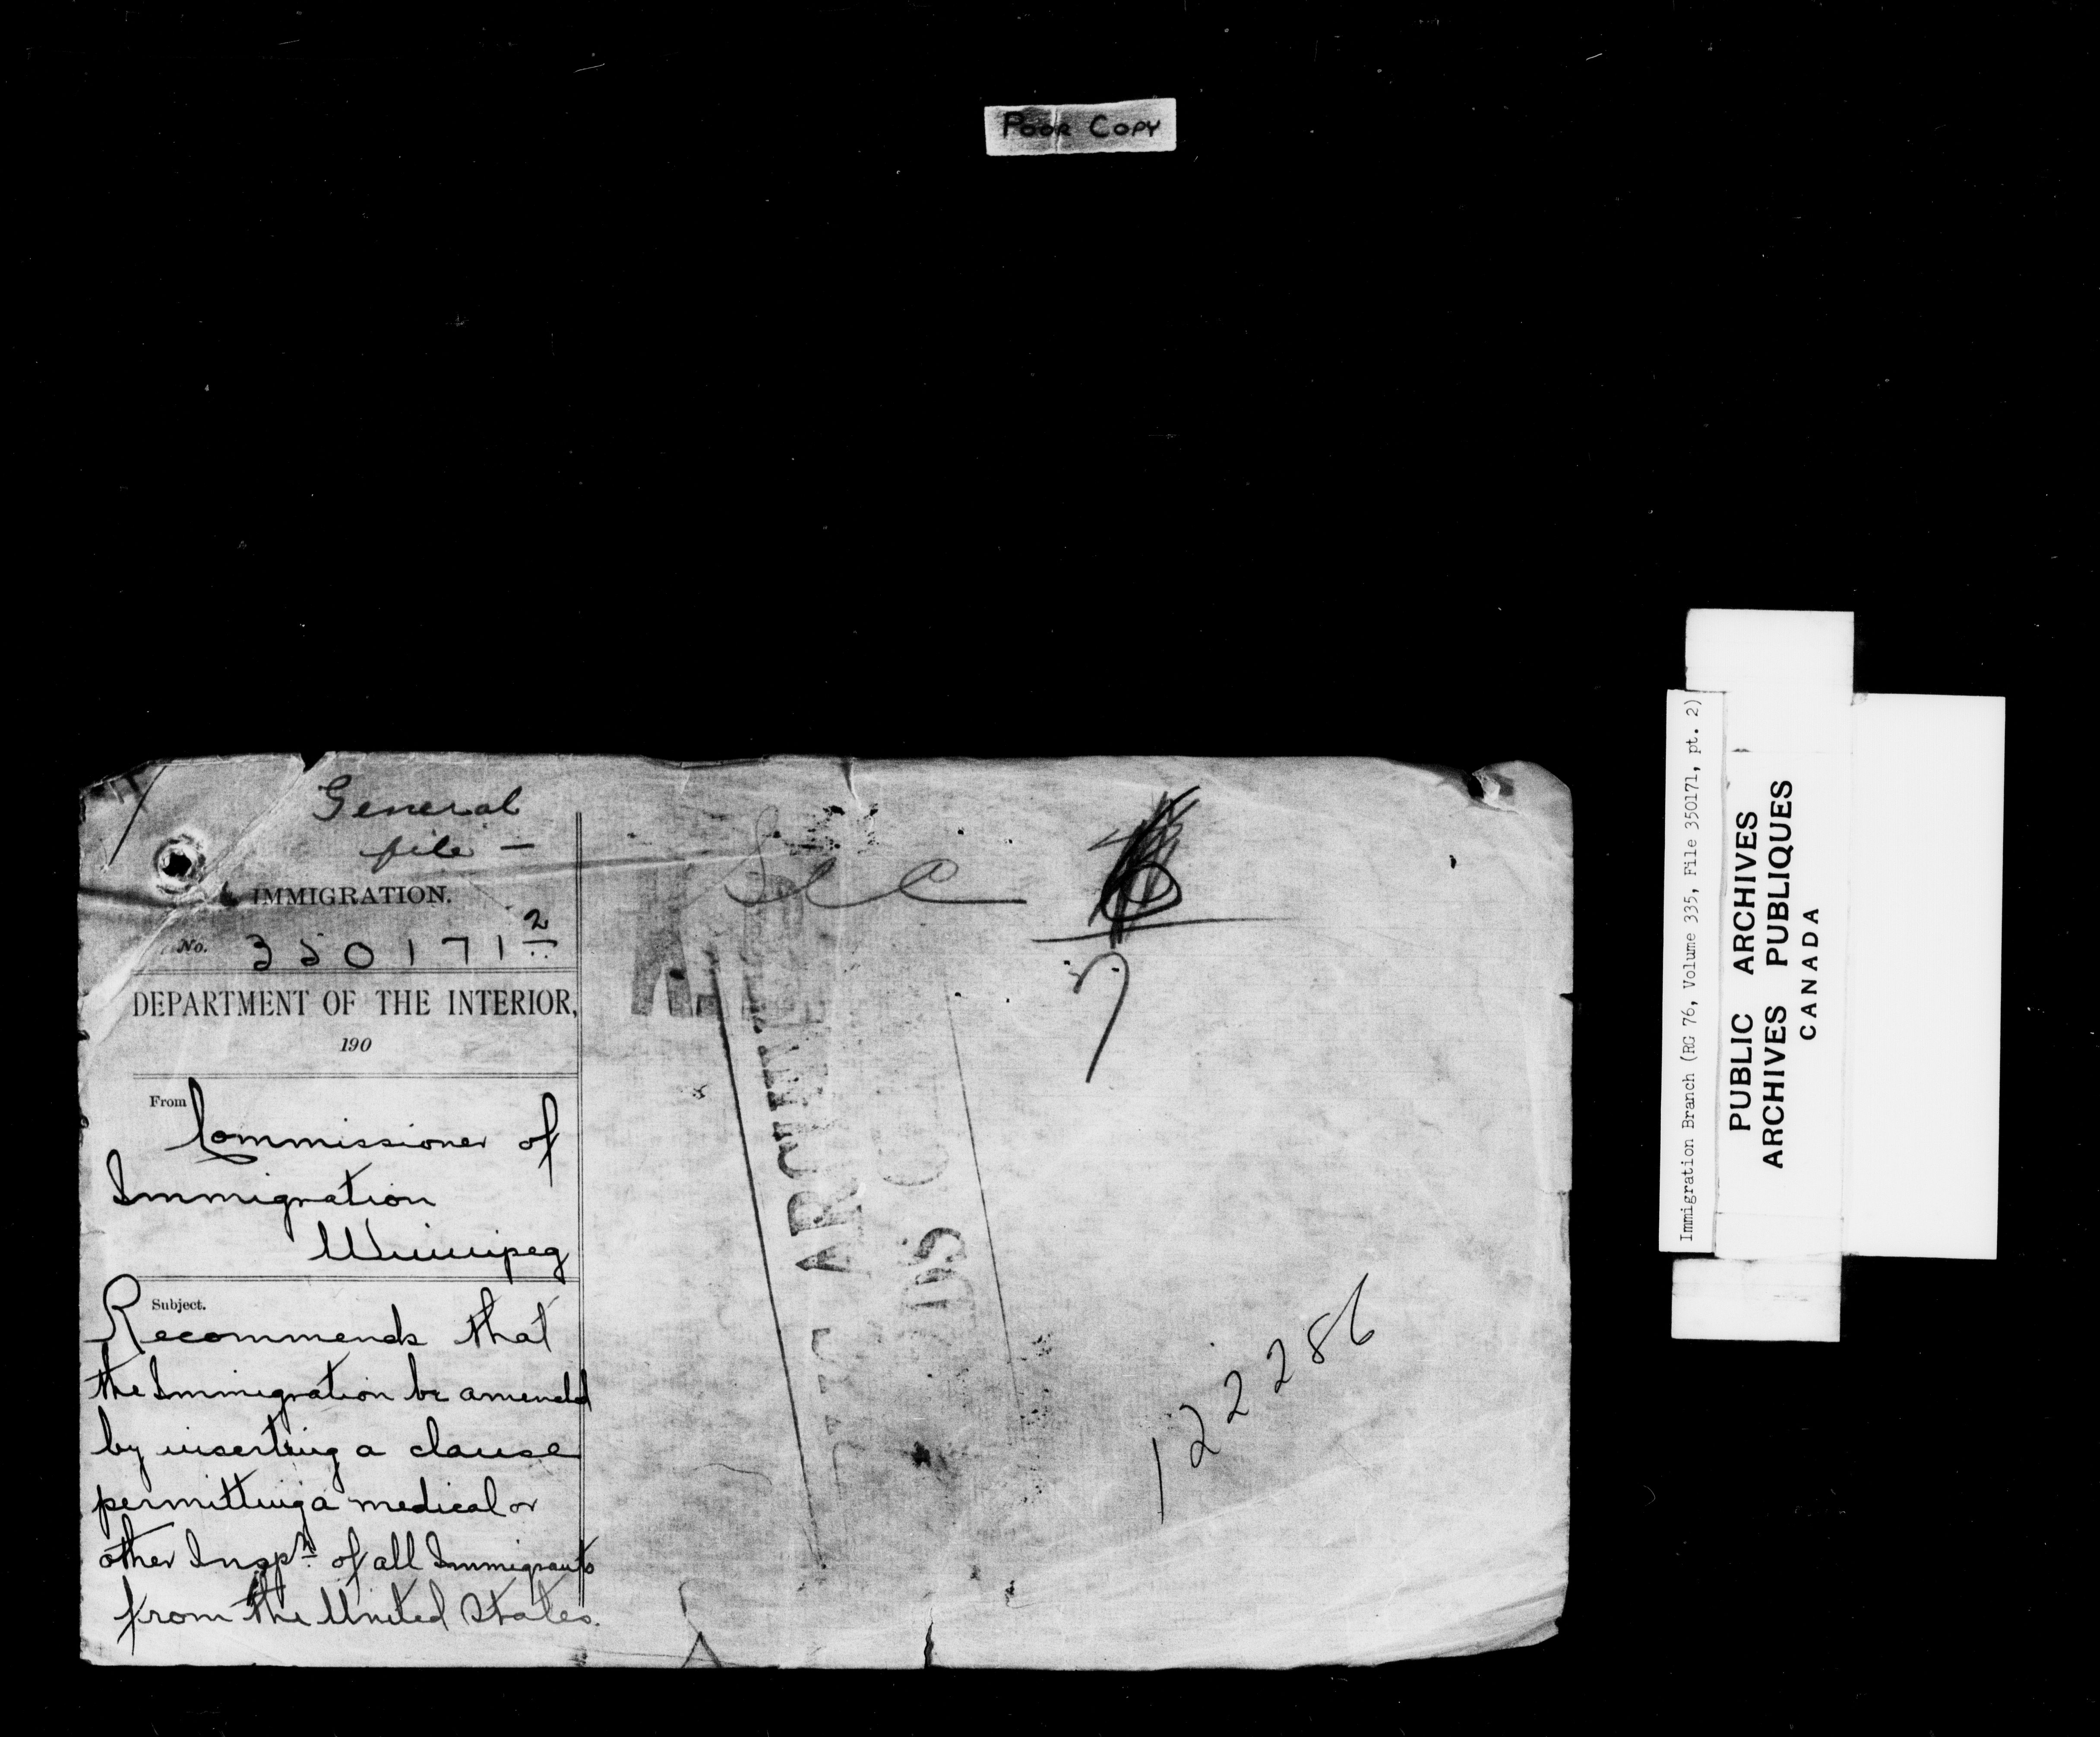 POOR COPY
General
file —
IMMIGRATION.
No. 350171 2
DEPARTMENT OF THE INTERIOR,
190
From Commissioner of
Immigration
Winnipeg
Subject.
Recommends that
the Immigration be amended
by inserting a clause
permitting a medical or
other Inspn. of all Immigrants
from the United States.
7
122286
Immigration Branch (RG 76, Volume 335, File 350171, pt. 2)
PUBLIC ARCHIVES
ARCHIVES PUBLIQUES
CANADA